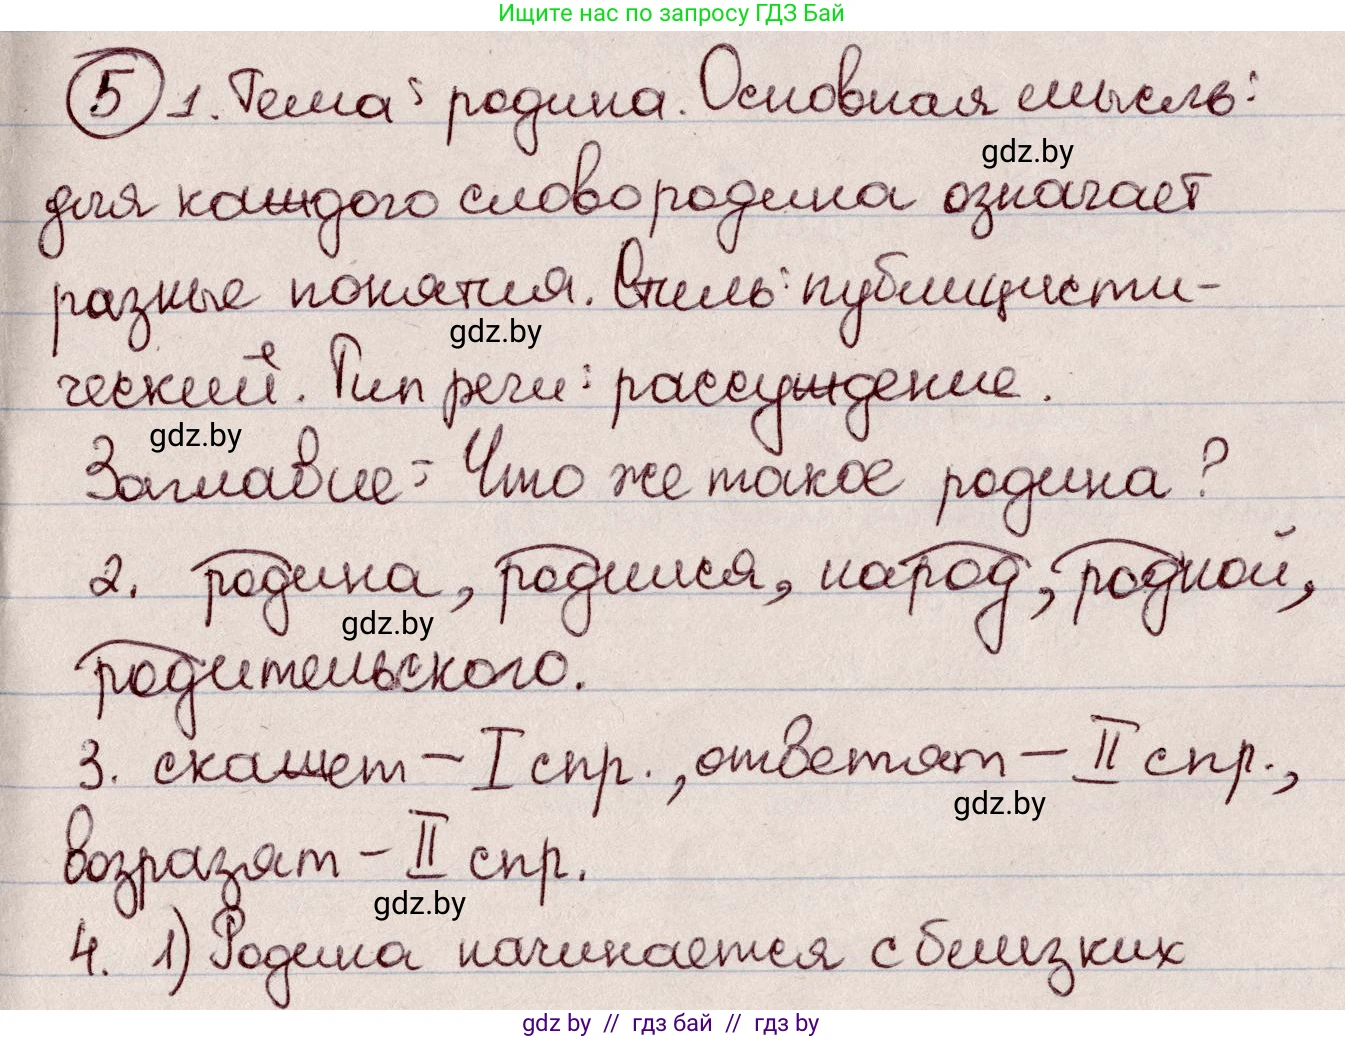 Ищите нас по запросу ГДЗ Бай
5 1. Тема: родина. Основная мысль:
gdz.by
для каждого слово родина означает
разные понятия. Стиль: публицисти-
gdz.by
ческий. Тип речи: рассуждение.
gdz.by
Заглавие: Что же такое родина?
2. родина, родился, народ, родной,
gdz.by
родительского.
3. скажет – I спр., ответят – II спр.,
gdz.by
возразят – II спр.
gdz.by
4. 1) Родина начинается с близких
gdz by // гдз бай // гдз by